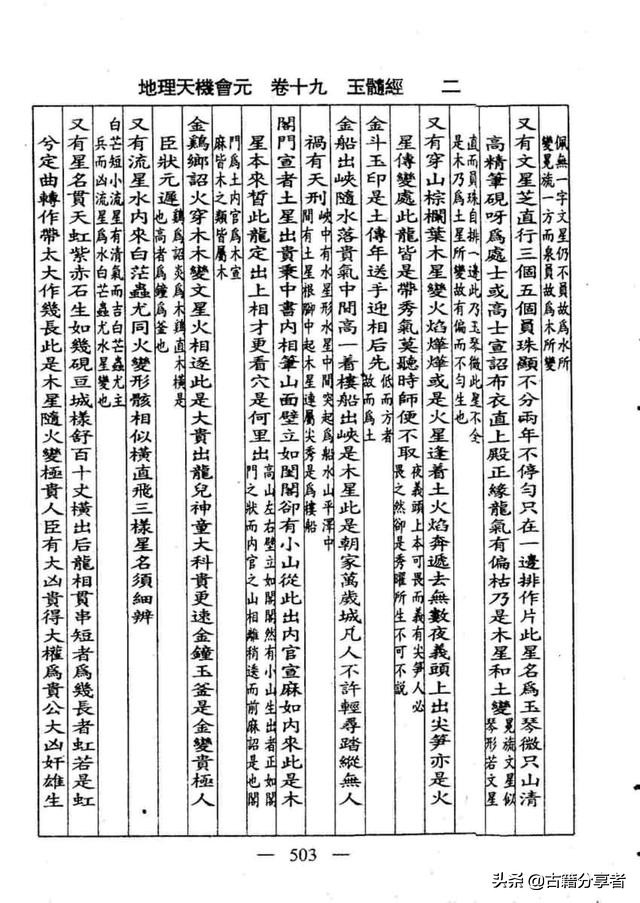 地理天機會元　卷十九　玉髓經　二
佩無一字文星仍不員故爲水所
變冕旒一方而泉員故爲木所變
又有文星芝直行三個五個員珠顯不分兩年不停勻只在一邊排作片此星名爲玉琴微只山清
高精筆硯呀爲處士或高士宣詔布衣直上殿正緣龍氣有偏枯乃是木星和土變
冕旒文星似
琴形若文星
直而員珠自排一邊此乃玉琴微此星不全
是木乃爲土星所變故有偏而不勻生也
又有穿山棕櫚葉木星變火焰燁燁或是火星逢着土火焰奔遞去無數夜義頭上出尖笋亦是火
星傳變處此龍皆是帶秀氣莫聽時師便不取
夜義頭上本可畏而義有尖笋人必
畏之然卻是秀曜所生不可不說
金斗玉印是土傳年送手迎相后先
低而方者
故而爲土
金船出峽隨水落貴氣中間高一着樓船出峽是木星此是朝家萬歲城凡人不許輕尋踏縱無人
禍有天刑
峽中有水星形水星中間突起爲船水山平澤中
間有土星根腳中起木星連屬尖秀是爲樓船
閣門宣者土星出貴乘中書內相筆山面壁立如閨閣卻有小山從此出內官宣麻如內來此是木
星本來晢此龍定出上相才更看穴是何里出
高山左右壁立如閣閣然有小山生出者正如閣
門之狀而內官之山相離稍迗而前麻詔是也閣
門爲土內官爲木宣
麻皆木之類皆屬木
金鷄鄉詔火穿木木變文星火相逐此是大貴出龍兒神童大科貴更速金鐘玉釜是金變貴極人
臣狀元遲
鷄爲詔炎爲木鷄直木橫是
也高者爲鐘爲釜也
又有流星水內來白茫蟲尤同火變形骸相似橫直飛三樣星名須細辨
白芒短小流星有清氣而吉白芒蟲尤主
兵而凶流星爲水白芒蟲尤水星變也
又有星名貫天虹紫赤石生如幾硯豆城樣舒百十丈橫出后龍相貫串短者爲幾長者虹若是虹
兮定曲轉作帶太大作幾長此是木星隨火變極貴人臣有大凶貴得大權爲貴公大凶奸雄生
— 503 —
头条 @古籍分享者